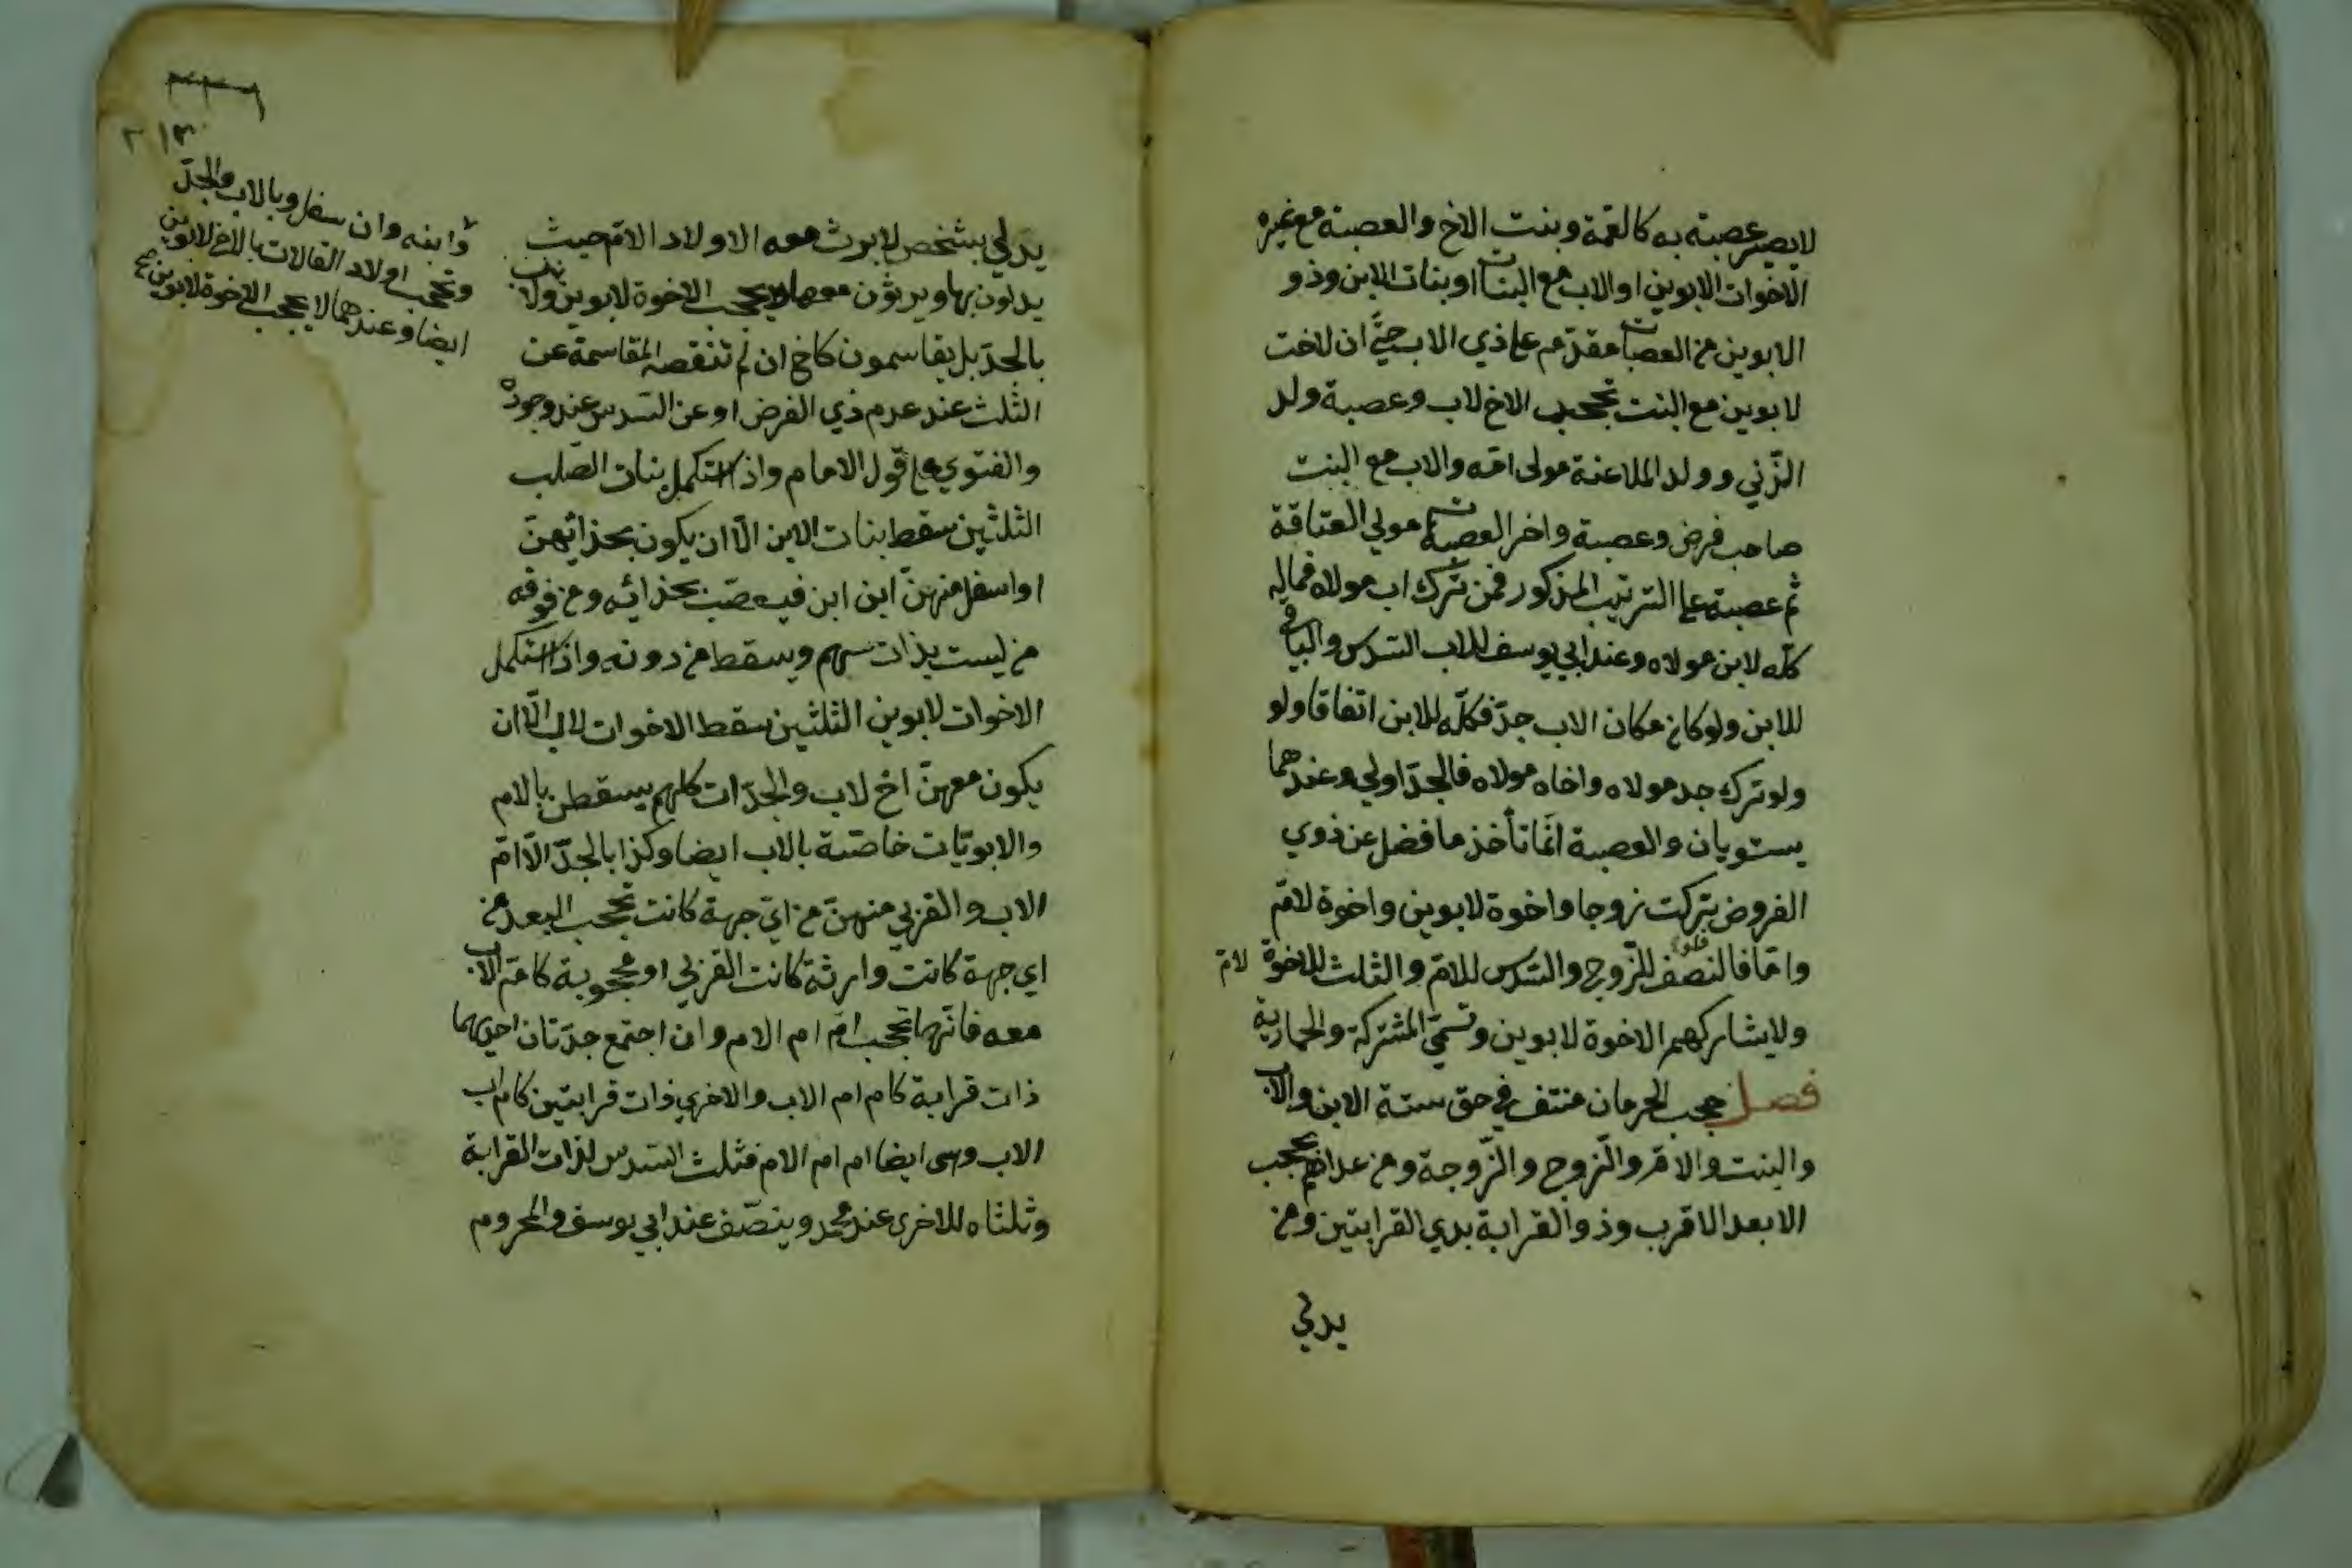 لا يصير عصبته به كالعمة وبنت الاخ والعصبة مع غيره
الاخوات لابوين او الاب مع البنات او بنات الابن وذو
الابوين من العصبات مقدم على ذي الاب حتى ان لاخت
لابوين مع البنت تحجب الاخ لاب وعصبة ولد
الزني وولد الملاعنة مولى امه والاب مع البنت
صاحب فرض وعصبة واخر العصبات مولي العتاقة
ثم عصبته على الترتيب المذكور فمن ترك اب مولاه فماله
كله لابن مولاه وعند ابي يوسف للاب السدس والباقي
للابن ولو كان مكان الاب جد فكله للابن اتفاقا ولو
ولو ترك جد مولاه واخاه مولاه فالجد اولي وعندهما
يستويان والعصبة انما تأخذ ما فضل عن ذوي
الفروض تركت زوجا واخوة لابوين واخوة لام
فلو
واما فالنصف للزوج والسدس للام والثلث للاخوة لام
ولا يشاركهم الاخوة لابوين وتسمى المشتركة والحمارية
فصل حجب الحرمان منتف في حق ستة الابن والاب
والبنت والام والزوج والزوجة ومن عداهم يحجب
الابعد الاقرب وذو القرابة بذي القرابتين ومن
يدلي
٢١٣
يدلي بشخص لا يرث معه الا اولاد الام حيث
يدلون بها ويرثون معها ويحجب الاخوة لابوين ولا
بالجد بل يقاسمون كاخ ان لم تنقصه المقاسمة عن
الثلث عند عدم ذي الفرض او عن السدس عند وجوده
والفتوي على قول الامام واذا استكمل بنات الصلب
الثلثين سقط بنات الابن الا ان يكون بحذائهن
او اسفل منهن ابن ابن فيعصب بحذائه ومن فوقه
من ليست بذات سهم ويسقط من دونه واذا استكمل
الاخوات لابوين الثلثين سقط الاخوات لاب الا ان
يكون معهن اخ لاب والجدات كلهم يسقطن بالام
والابويات خاصة بالاب ايضا وكذا بالجد الا ام
الاب والقربي منهن من اي جهة كانت تحجب البعد من
اي جهة كانت وارثة كانت القربي او محجوبة كام الاب
معه فانها تحجب ام ام الام وان اجتمع جدتان احديهما
ذات قرابة كام ام الاب والاخري ذات قرابتين كام اب
الاب وهى ايضا ام ام الام فثلث السدس لذات القرابة
وثلثاه للاخرى عند محمد وينصف عند ابي يوسف والمحروم
وابنه وان سفل وبالاب والجد
وتحجب اولاد العلات بالاخ لابوين
ايضا وعندهما لا يحجب الاخوة لابوين